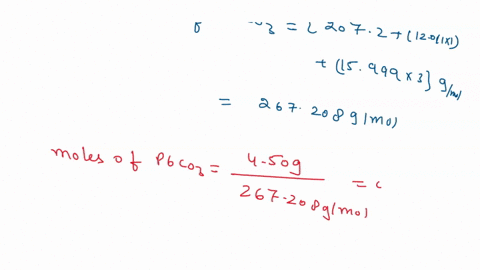 CO3 = { 207.2 + (12.011x1)
+ (15.999 x 3) } g/mol
= 267.208 g/mol
moles of PbCO3 = 4.50g / 267.208 g/mol =